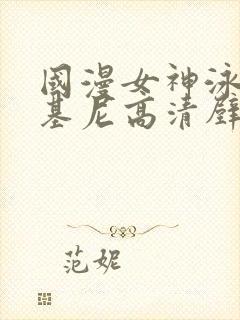 國漫女神泳
基尼高清壁
范妮